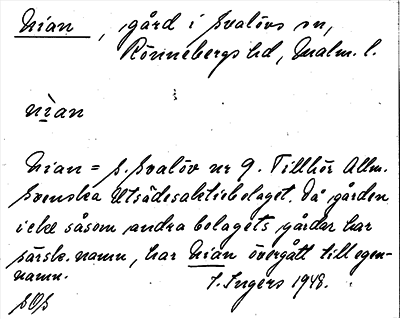 Nian, gård i Svalövs sn,
Rönnebergs hd, Malm. l.
nìan
Nian = S. Svalöv nr 9. Tillhör Allm.
Svenska Utsädesaktiebolaget. Då gården
icke såsom andra bolagets gårdar har
särsk. namn, har Nian övergått till egen-
namn.
I. Ingers 1948.
SOS